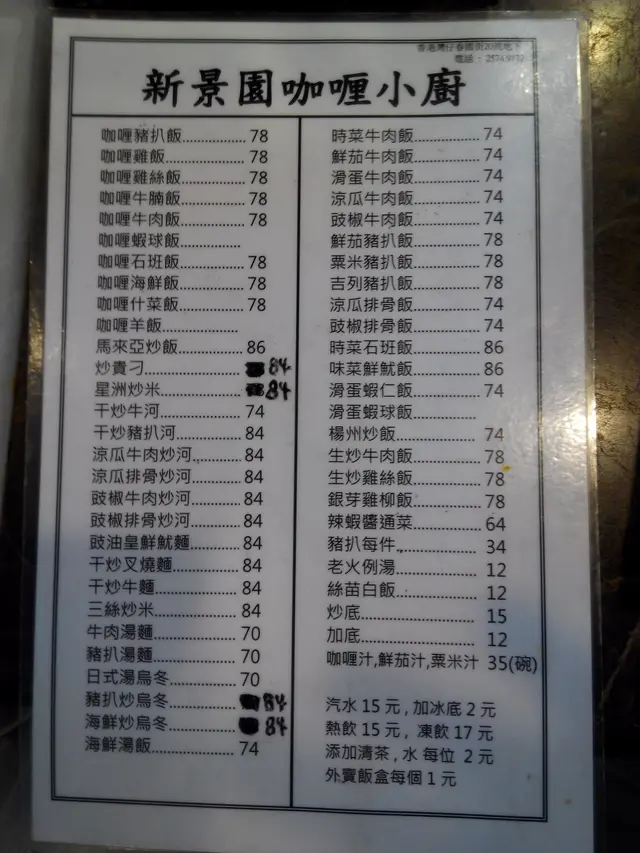 香港灣仔春園街20號地下
電話：25749972
新景園咖喱小廚
咖喱豬扒飯................ 78
咖喱雞飯................ 78
咖喱雞絲飯................ 78
咖喱牛腩飯................ 78
咖喱牛肉飯................ 78
咖喱蝦球飯................
咖喱石班飯................ 78
咖喱海鮮飯................ 78
咖喱什菜飯................ 78
咖喱羊飯................
馬來亞炒飯................ 86
炒貴刁................ 84
星洲炒米................ 84
干炒牛河................ 74
干炒豬扒河................ 84
涼瓜牛肉炒河................ 84
涼瓜排骨炒河................ 84
豉椒牛肉炒河................ 84
豉椒排骨炒河................ 84
豉油皇鮮魷麵................ 84
干炒叉燒麵................ 84
干炒牛麵................ 84
三絲炒米................ 84
牛肉湯麵................ 70
豬扒湯麵................ 70
日式湯烏冬................ 70
豬扒炒烏冬................ 84
海鮮炒烏冬................ 84
海鮮湯飯................ 74
時菜牛肉飯................ 74
鮮茄牛肉飯................ 74
滑蛋牛肉飯................ 74
涼瓜牛肉飯................ 74
豉椒牛肉飯................ 74
鮮茄豬扒飯................ 78
粟米豬扒飯................ 78
吉列豬扒飯................ 78
涼瓜排骨飯................ 74
豉椒排骨飯................ 74
時菜石班飯................ 86
味菜鮮魷飯................ 86
滑蛋蝦仁飯................ 74
滑蛋蝦球飯................
楊州炒飯................ 74
生炒牛肉飯................ 78
生炒雞絲飯................ 78
銀芽雞柳飯................ 78
辣蝦醬通菜................ 64
豬扒每件................ 34
老火例湯................ 12
絲苗白飯................ 12
炒底................ 15
加底................ 12
咖喱汁,鮮茄汁,粟米汁 35(碗)
汽水 15 元 , 加冰底 2 元
熱飲 15 元 , 凍飲 17 元
添加清茶 , 水 每位 2 元
外賣飯盒每個 1 元